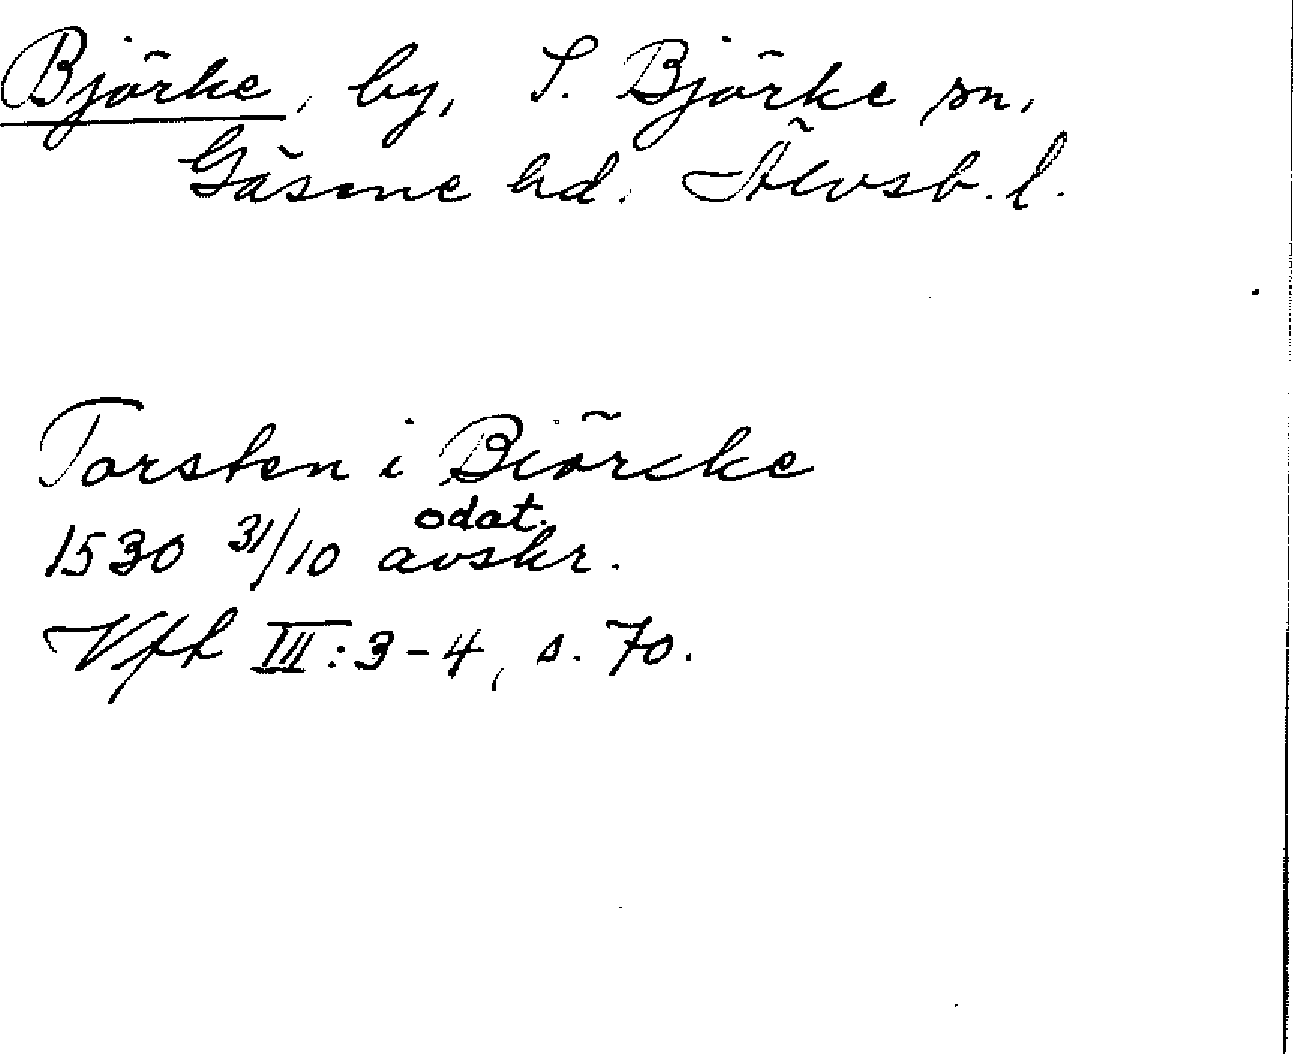 Björke, by, S. Björke sn,
Gäsene hd. Älvsb. l.
Torsten i Biörcke
odat.
1530 31/10 avskr.
Vfh III:3-4, s. 70.